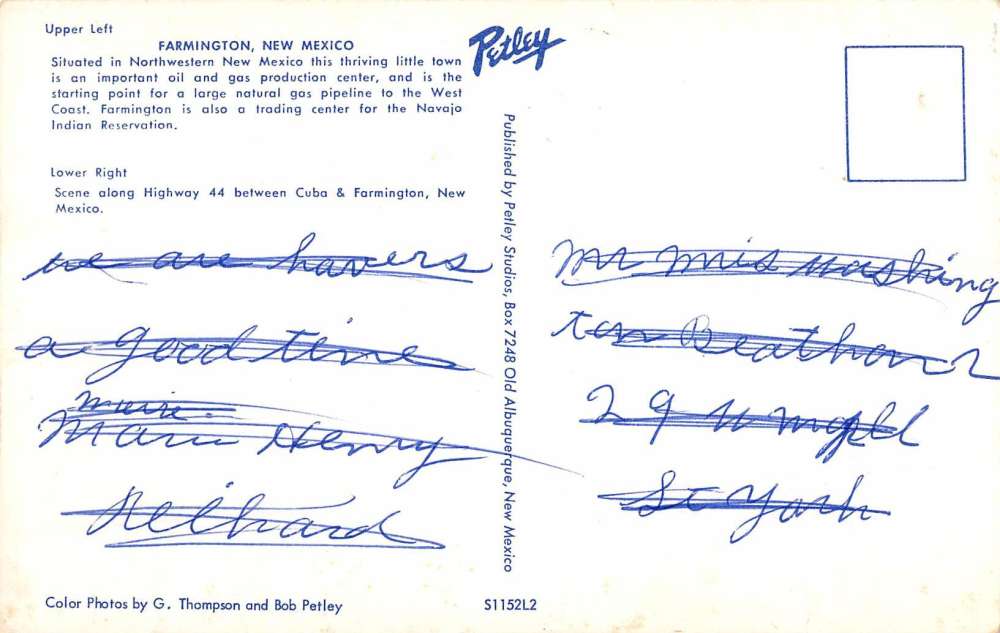 Upper Left
FARMINGTON, NEW MEXICO
Situated in Northwestern New Mexico this thriving little town
is an important oil and gas production center, and is the
starting point for a large natural gas pipeline to the West
Coast. Farmington is also a trading center for the Navajo
Indian Reservation.
Lower Right
Scene along Highway 44 between Cuba & Farmington, New
Mexico.
we are havers
a good time
Marie Henry
Color Photos by G. Thompson and Bob Petley
Petley
Published by Petley Studios, Box 7248 Old Albuquerque, New Mexico
S1152L2
Mr mis washing
ton
29 W
St York